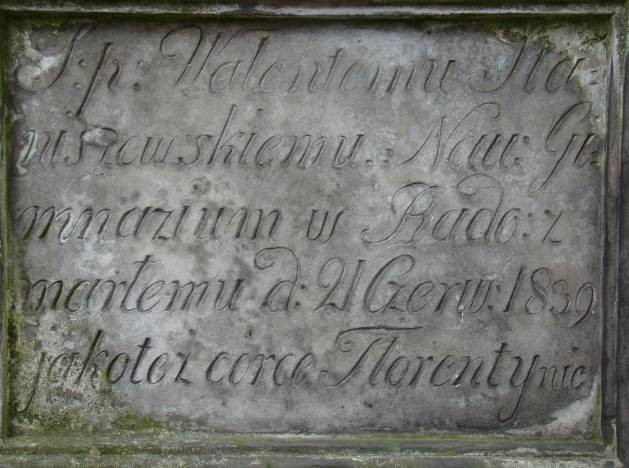 Ś: p: Walentemu Sta:
niszewskiemu. Nau: Gi:
mnazium w Rado: z
martemu d: 21 Czerw: 1839
jakotez corce Florentynie